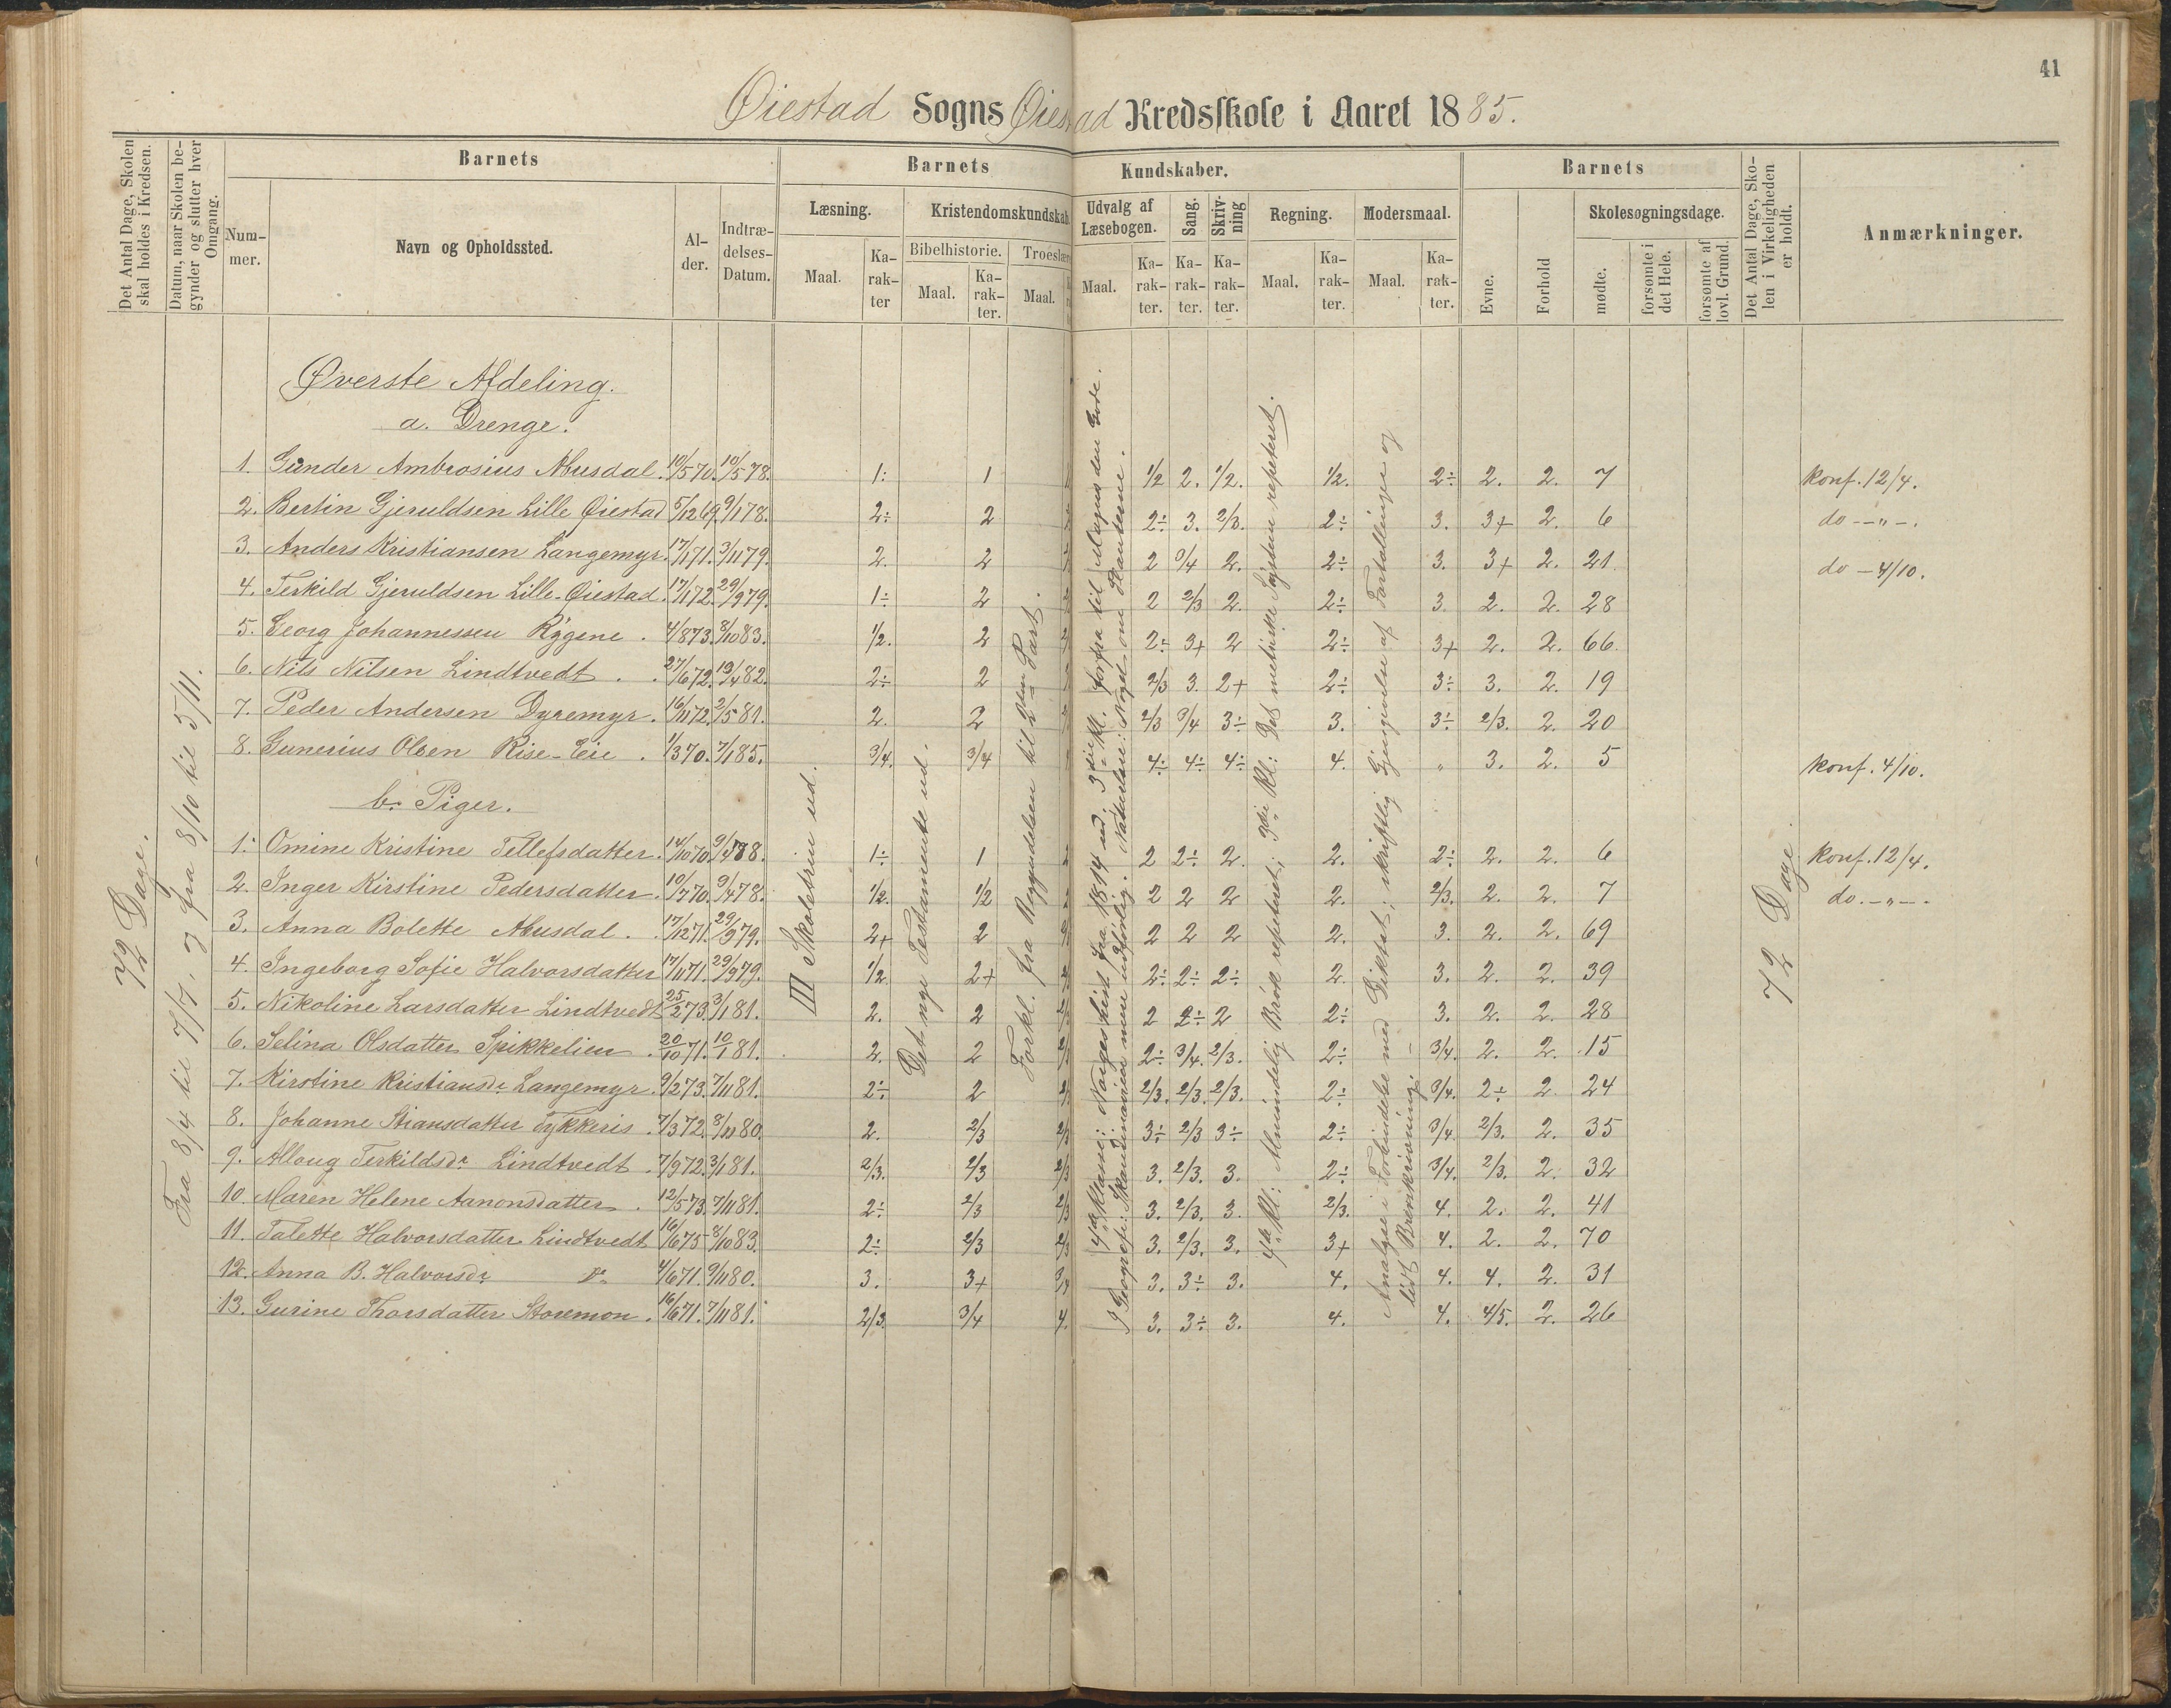 41
Øiestad Sogns Øiestad Kredsskole i Aaret 1885.
Det Antal Dage, Skolen skal holdes i Kredsen.
Datum, naar Skolen begynder og slutter hver Omgang.
Barnets
Nummer.
Navn og Opholdssted.
Alder.
Indtrædelses-Datum.
Barnets Kundskaber.
Læsning.
Maal.
Karakter
Kristendomskundskab
Bibelhistorie.
Maal.
Karakter.
Troeslære
Maal.
Udvalg af Læsebogen.
Maal.
Karakter.
Sang.
Karakter.
Skrivning
Karakter.
Regning.
Maal.
Karakter.
Modersmaal.
Maal.
Karakter.
Barnets
Evne.
Forhold
Skolesøgningsdage.
mødte.
forsømte i det Hele.
forsømte af lovl. Grund.
Det Antal Dage, Skolen i Virkeligheden er holdt.
Anmærkninger.
72 Dage.
Fra 8/4 til 7/7, og fra 8/10 til 5/11.
III Skoletrin ud.
Det nye Testamente ud.
Forkl. fra Begyndelsen til 2den Part.
4de Klasse: Norges hist. fra 1814 ud. 3die Kl. forfra til Magnus den Gode.
Geografi: Skandinavien men udførlig. Naturlære: Noget om Planterne.
4de Kl: Almindelig Brøk repeteret; 3die Kl: Det metriske System repeteret.
Analyse i Forbindelse med Diktat; skriftlig Gjengivelse af Fortællinger og
lidt Brevskrivning.
72 Dage.
Øverste Afdeling.
a. Drenge.
1. Gunder Ambrosius Abusdal. 10/5 70. 10/5 78. 1: 1 1/2 2. 1/2. 1/2. 2÷ 2. 2. 7 konf. 12/4.
2. Bertin Gjeruldsen Lille Øiestad 5/12 69. 9/1 78. 2÷ 2 2÷ 3. 2/3. 2÷ 3. 3+ 2. 6 do -"-.
3. Anders Kristiansen Langemyr. 17/1 71. 3/11 79. 2. 2 2 3/4 2. 2÷ 3. 3+ 2. 21 do - 4/10.
4. Terkild Gjeruldsen Lille-Øiestad. 17/1 72. 29/9 79. 1÷ 2 2 2/3 2. 2÷ 3. 2. 2. 28
5. Georg Johannessen Rygene. 4/8 73. 8/10 83. 1/2. 2 2÷ 3+ 2 2÷ 3+ 2. 2. 66.
6. Nils Nilsen Lindtvedt. 27/6 72. 19/4 82. 2÷ 2 2/3 3. 2+ 2÷ 3÷ 3. 2. 19
7. Peder Andersen Dyremyr. 16/11 72. 2/5 81. 2. 2 2/3 3/4 3÷ 3. 3÷ 2/3. 2. 20
8. Gunerius Olsen Rise-Eie. 1/3 70. 7/1 85. 3/4. 3/4 4÷ 4÷ 4÷ 4. " 3. 2. 5 konf. 4/10.
b. Piger.
1. Omine Kristine Tellefsdatter. 14/10 70. 9/4 78. 1÷ 1 2 2÷ 2. 2. 2÷ 2. 2. 6 konf. 12/4.
2. Inger Kirstine Pedersdatter. 10/7 70. 9/4 78. 1/2. 1/2 2 2 2 2. 2/3. 2. 2. 7 do. -"-.
3. Anna Bolette Abusdal. 17/12 71. 29/9 79. 2+ 2 2 2 2 2. 3. 2. 2. 69
4. Ingeborg Sofie Halvorsdatter 17/11 71. 29/9 79. 1/2 2+ 2÷ 2÷ 2÷ 2. 3. 2. 2. 39
5. Nikoline Larsdatter Lindtvedt 25/2 73. 3/1 81. 2. 2 2 2÷ 2 2÷ 3. 2. 2. 28
6. Selina Olsdatter Spikkelien. 20/10 71. 10/1 81. 2. 2 2÷ 3/4. 2/3. 2÷ 3/4. 2. 2. 15
7. Kirstine Kristiansdr. Langemyr. 9/2 73. 7/11 81. 2÷ 2 2/3. 2/3. 2/3. 2÷ 3/4. 2÷ 2. 24
8. Johanne Stiansdatter Tykkeris. 7/3 72. 3/11 80. 2. 2/3 2/3 3÷ 2/3 3÷ 2÷ 3/4 2/3. 2. 35
9. Alloug Terkildsdr Lindtvedt. 7/9 72. 3/1 81. 2/3. 2/3 2/3 3. 2/3. 3. 2÷ 3/4. 2/3. 2. 32
10. Maren Helene Aanonsdatter. 12/5 73. 7/11 81. 2÷ 2/3 2/3 3. 2/3. 3. 2/3. 4. 2. 2. 41
11. Talette Halvorsdatter Lindtvedt 16/6 75 8/10 83. 2÷ 2/3 2/3 3. 2/3. 3. 3+ 4. 2. 2. 70
12. Anna B. Halvorsdr do 4/6 71. 9/11 80. 3. 3+ 3/4 3. 3÷ 3. 4. 4. 4. 2. 31
13. Gurine Thorsdatter Storemon. 16/6 71. 7/11 81. 2/3 3/4 4. 3. 3÷ 3. 4. 4. 4/5. 2. 26